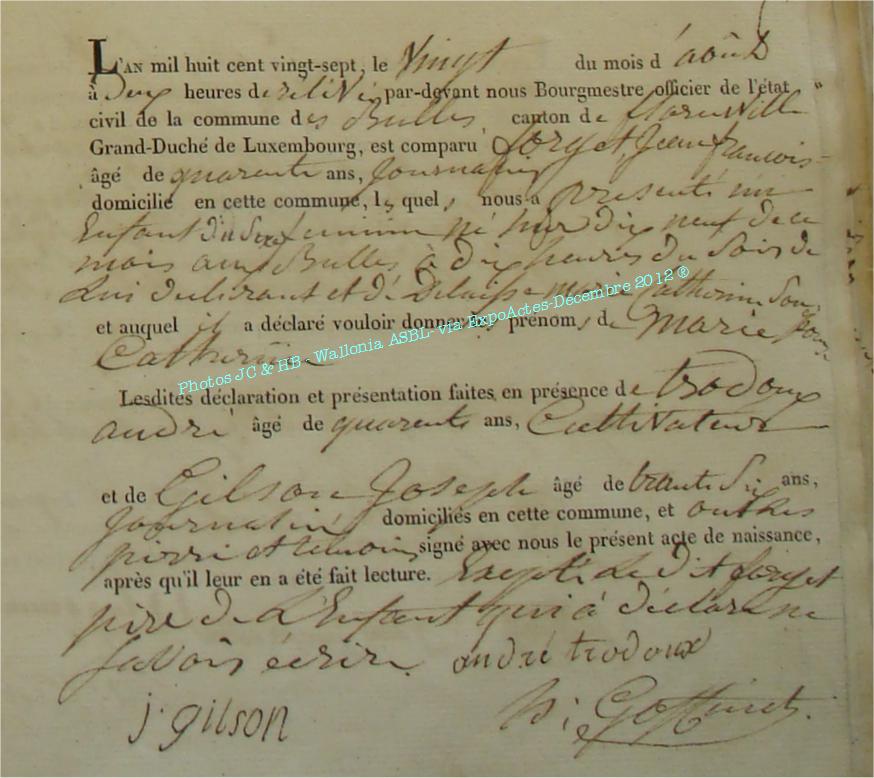 L'AN mil huit cent vingt-sept, le Vingt du mois d'août
à Deux heures de rélivé par-devant nous Bourgmestre officier de l'état
civil de la commune des Bulles, canton de florenville
Grand-Duché de Luxembourg, est comparu Forget, Jean francois
âgé de quarente ans, Journalier
domicilié en cette commune, lequel nous a presenté un
Enfant du Sexe feminin né hier dix neuf de ce
mois aux Bulles à dix heures du Soir de
Lui declarant et de marie Catherine Son Epouse
et auquel il a déclaré vouloir donner les prénoms de marie
Catherine
Lesdites déclaration et présentation faites en présence de trodoux
andré âgé de quarente ans, Cultivateur
et de Gilson Joseph âgé de trente Six ans,
Journalier domiciliés en cette commune, et ont les
pere et temoins signé avec nous le présent acte de naissance,
après qu'il leur en a été fait lecture. Excepté Le dit forget
pere de L'Enfant qui à déclaré ne
Savoir écrire. andré trodoux
j. gilson
Goffinet
Photos JC & HB - Wallonia ASBL- via ExpoActes-Décembre 2012 ®